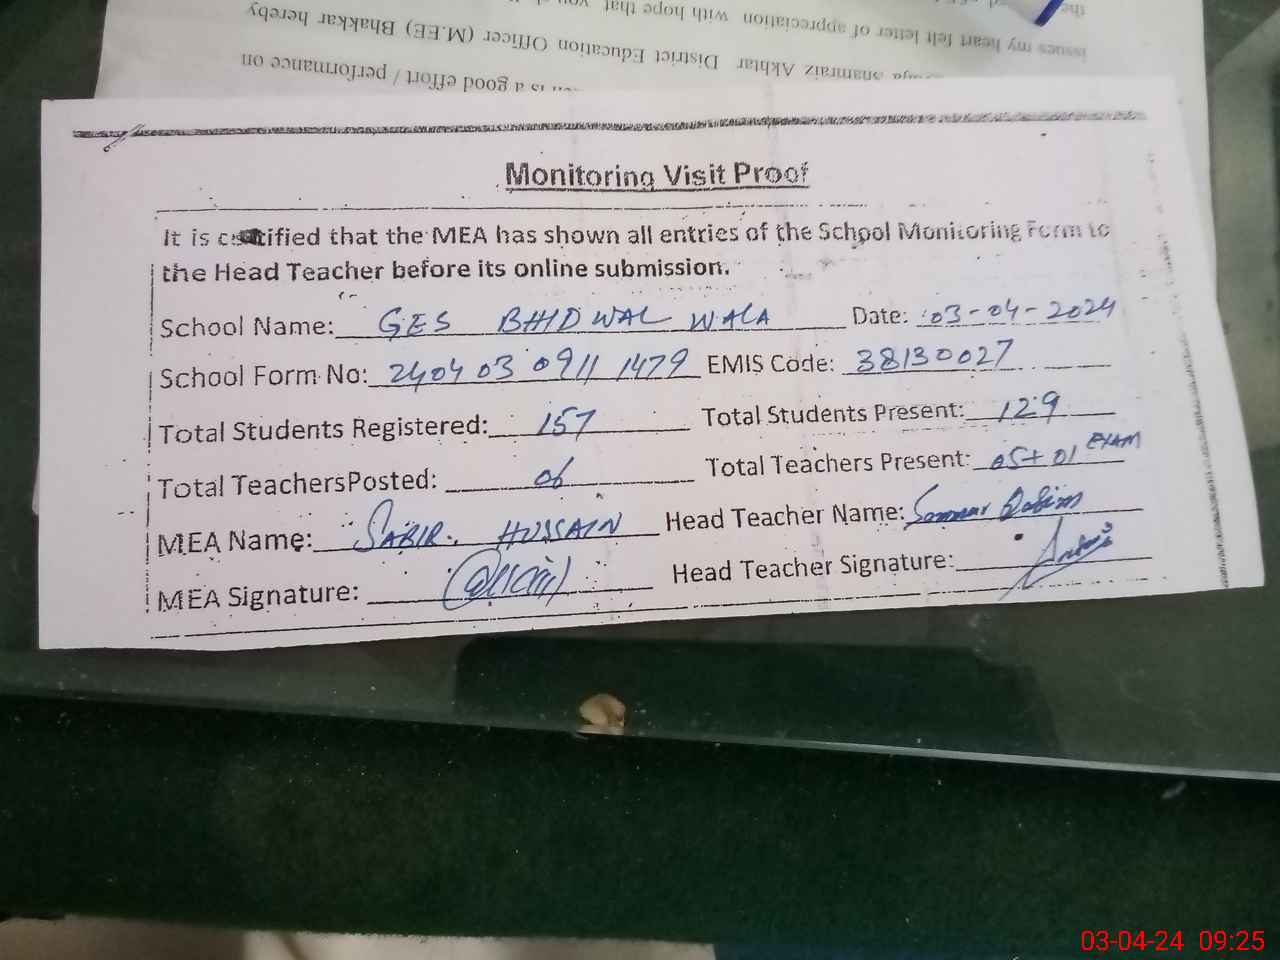 the
issues my heart felt letter of appreciation with hope that you
Shamraiz Akhtar District Education Officer (M.EE) Bhakkar hereby
is a good effort / performance on
Monitoring Visit Proof
It is certified that the MEA has shown all entries of the School Monitoring Form to
the Head Teacher before its online submission.
School Name: GES BHIDWAL WALA Date: 03-04-2024
School Form No: 240403 0911 1479 EMIS Code: 38130027
Total Students Registered: 157 Total Students Present: 129
Total TeachersPosted: 06 Total Teachers Present: 05+01 EXAM
MEA Name: SABIR HUSSAIN Head Teacher Name:
MEA Signature: Head Teacher Signature:
03-04-24 09:25